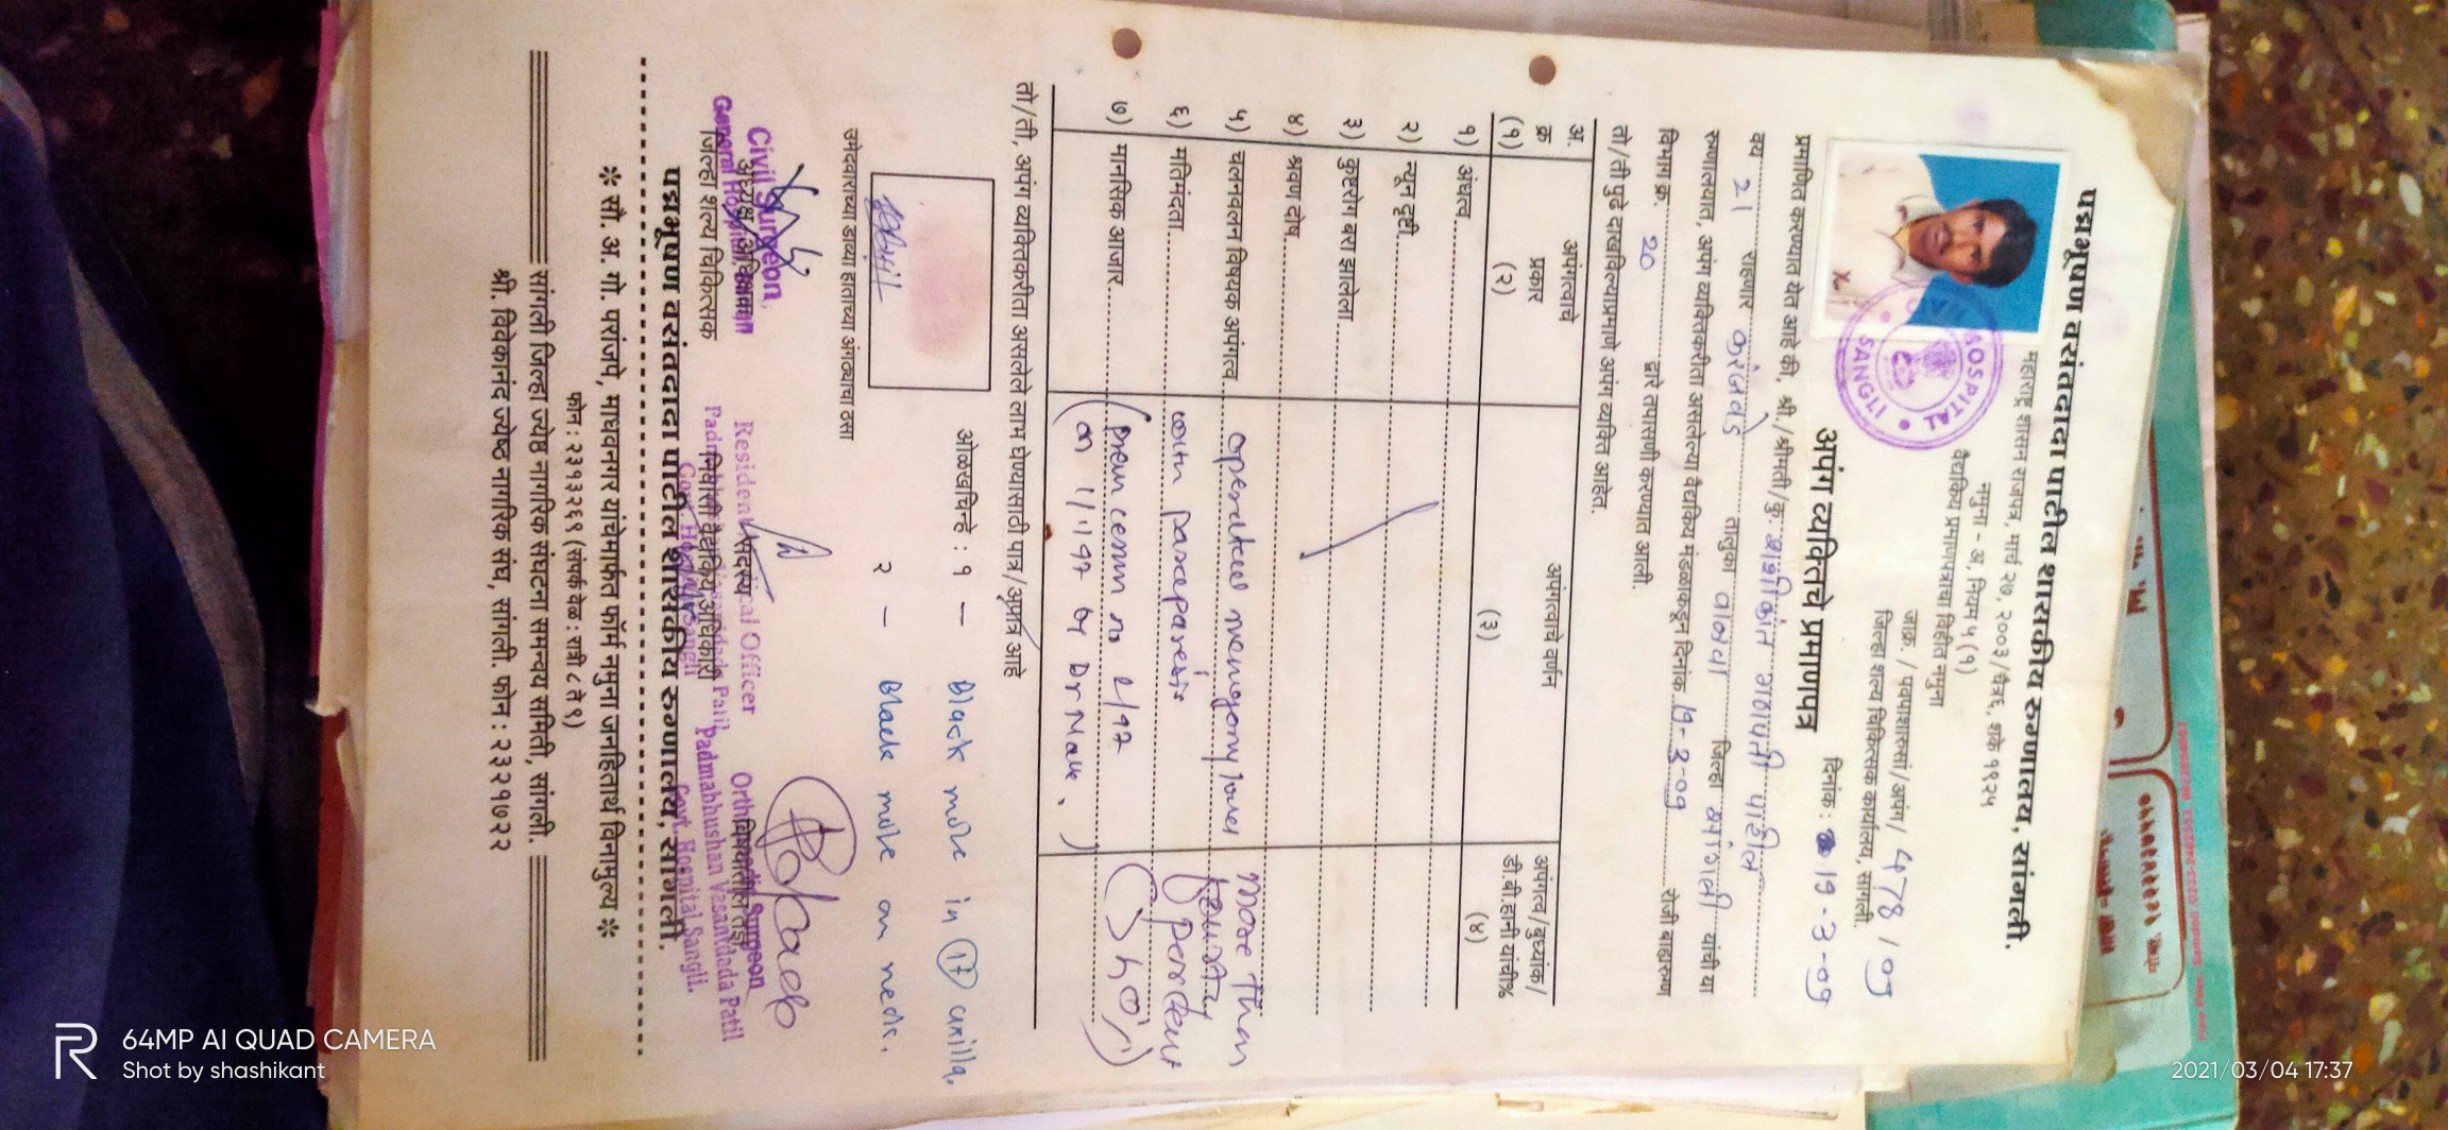 पद्मभूषण वसंतदादा पाटील शासकीय रुग्णालय, सांगली.
महाराष्ट्र शासन राजपत्र, मार्च २७, २००३/चैत्र ६, शके १९२५
नमुना - अ, नियम ५ (१)
वैद्यकिय प्रमाणपत्राचा विहीत नमुना
जाक्र. / पवपाशारुसां/अपंग/ 478 / 09
जिल्हा शल्य चिकित्सक कार्यालय, सांगली.
अपंग व्यक्तिचे प्रमाणपत्र
दिनांक : 19-3-09
HOSPITAL
SANGLI
प्रमाणित करण्यात येत आहे की, श्री./श्रीमती/कु. शशीकांत गणपती पाटील
वय 21 राहणार करंजवडे तालुका वाळवा जिल्हा सांगली यांची या
रुग्णालयात, अपंग व्यक्तिकरीता असलेल्या वैद्यकिय मंडळाकडून दिनांक 19-3-09 रोजी बाह्यरुग्ण
विभाग क्र. 20 द्वारे तपासणी करण्यात आली.
तो/ती पुढे दाखविल्याप्रमाणे अपंग व्यक्ति आहेत.
अ. क्र (१) अपंगत्वाचे प्रकार (२) अपंगत्वाचे वर्णन (३) अपंगत्व/बुध्यांक/ डी.बी.हानी यांची% (४)
१) अंधत्व
२) न्यून दृष्टी
३) कुष्टरोग बरा झालेला
४) श्रवण दोष
५) चलनवलन विषयक अपंगत्व operated meningomy lower more than
६) मतिमंदता with paraparesis percent
७) मानसिक आजार (Prem cemin no 2/97 (>40%)
on 1/1/97 by Dr
तो/ती, अपंग व्यक्तिकरीता असलेले लाभ घेण्यासाठी पात्र/अपात्र आहे
ओळखचिन्हे : १ - Black mole in axilla.
२ - Black mole on neck.
उमेदवाराच्या डाव्या हाताच्या अंगठ्याचा ठसा
Civil Surgeon,
General Hospital, Sangli
जिल्हा शल्य चिकित्सक
Resident Medical Officer
सदस्य
निवासी वैद्यकिय अधिकारी
Padmabhushan Vasantdada Patil
Govt. Hospital Sangli
Orthopaedic Surgeon
Padmabhushan Vasantdada Patil
Govt. Hospital Sangli.
पद्मभूषण वसंतदादा पाटील शासकीय रुग्णालय, सांगली.
* सौ. अ. गो. परांजपे, माधवनगर यांचेमार्फत फॉर्म नमुना जनहितार्थ विनामुल्य *
फोन : २३१३२६१ (संपर्क वेळ : रात्री ८ ते ९)
सांगली जिल्हा ज्येष्ठ नागरिक संघटना समन्वय समिती, सांगली.
श्री. विवेकानंद ज्येष्ठ नागरिक संघ, सांगली. फोन : २३२१७२२
64MP AI QUAD CAMERA
Shot by shashikant
2021/03/04 17:37